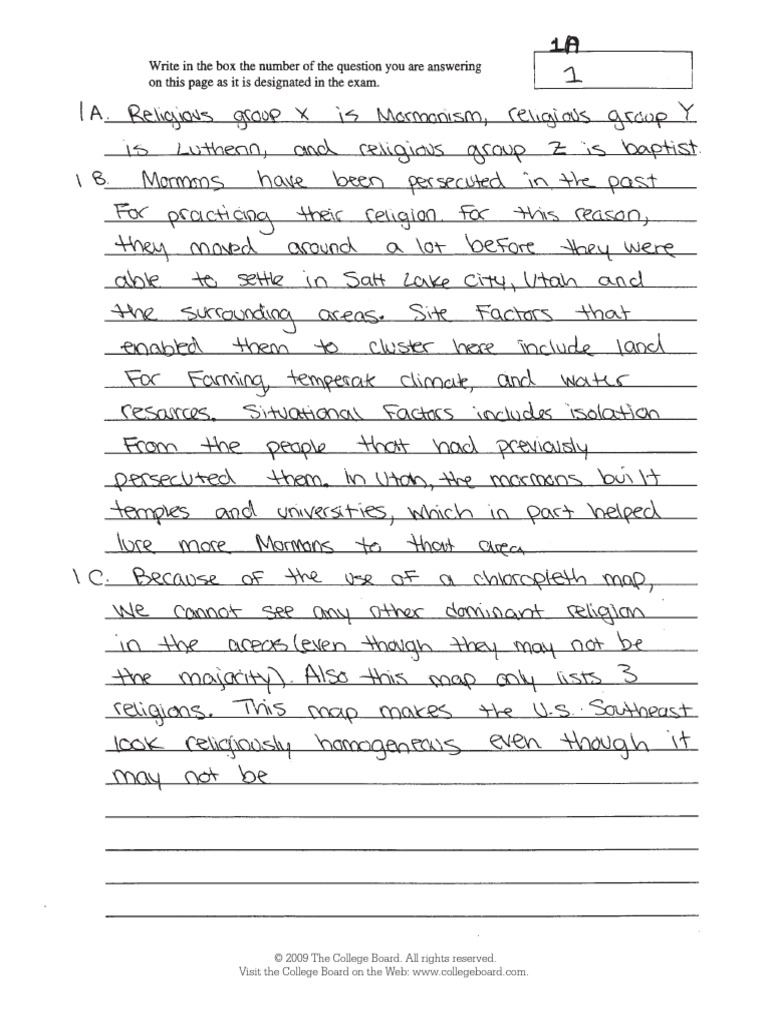 1A
Write in the box the number of the question you are answering
on this page as it is designated in the exam.
1
1A. Religious group X is Mormonism, religious group Y
is Luthern, and religious group Z is baptist.
1 B. Mormons have been persecuted in the past
For practicing their religion. For this reason,
they moved around a lot before they were
able to settle in Salt Lake City, Utah and
the surrounding areas. Site Factors that
enabled them to cluster here include land
For Farming, temperat climate, and water
resources. Situational Factors includes isolation
From the people that had previously
persecuted them. In Utah, the mormons built
temples and universities, which in part helped
lure more Mormons to that area.
1 C. Because of the use of a chloropleth map,
we cannot see any other dominant religion
in the areas (even though they may not be
the majority). Also this map only lists 3
religions. This map makes the U.S. Southeast
look religiously homogeneous even though it
may not be
© 2009 The College Board. All rights reserved.
Visit the College Board on the Web: www.collegeboard.com.